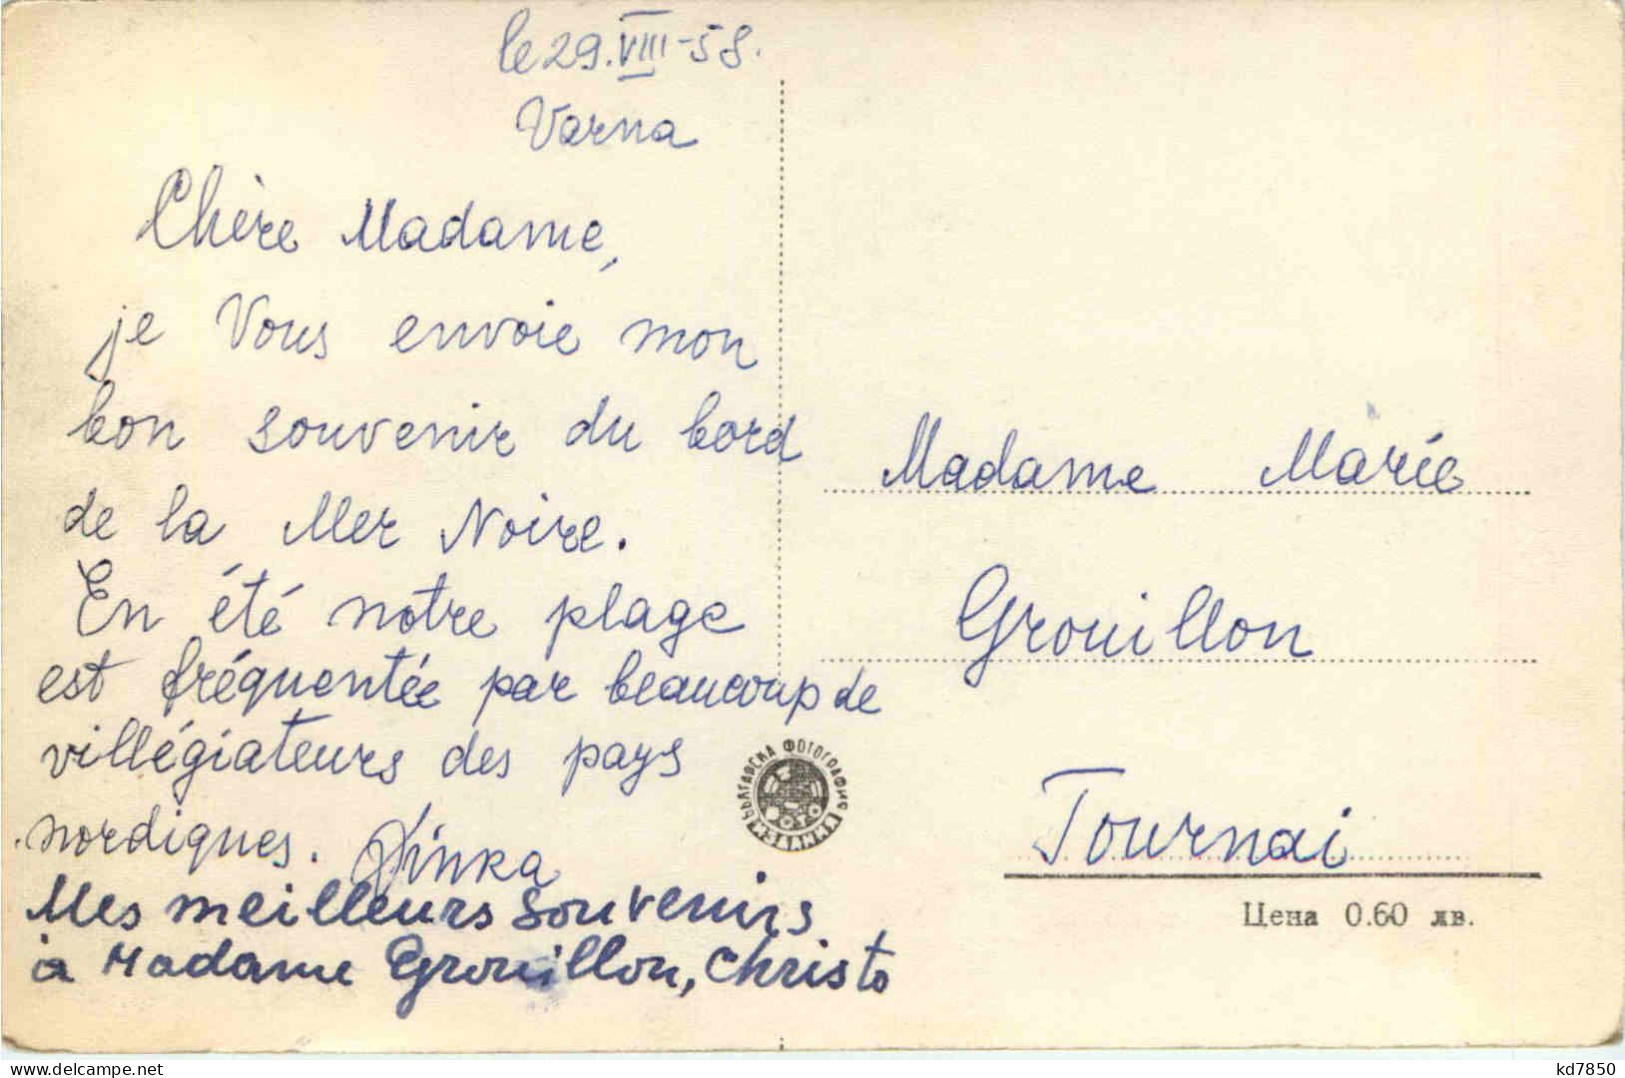 le 29.VIII-58.
Varna
Chère Madame,
je Vous envoie mon
bon souvenir du bord
de la Mer Noire.
En été notre plage
est fréquentée par beaucoup de
villégiateurs des pays
nordiques. Dinka
Mes meilleurs souvenirs
à Madame Grouillon, Christo
Madame Marie
Grouillon
Tournai
БЪЛГАРСКА ФОТОГРАФИЯ
Цена 0.60 лв.
kd7850